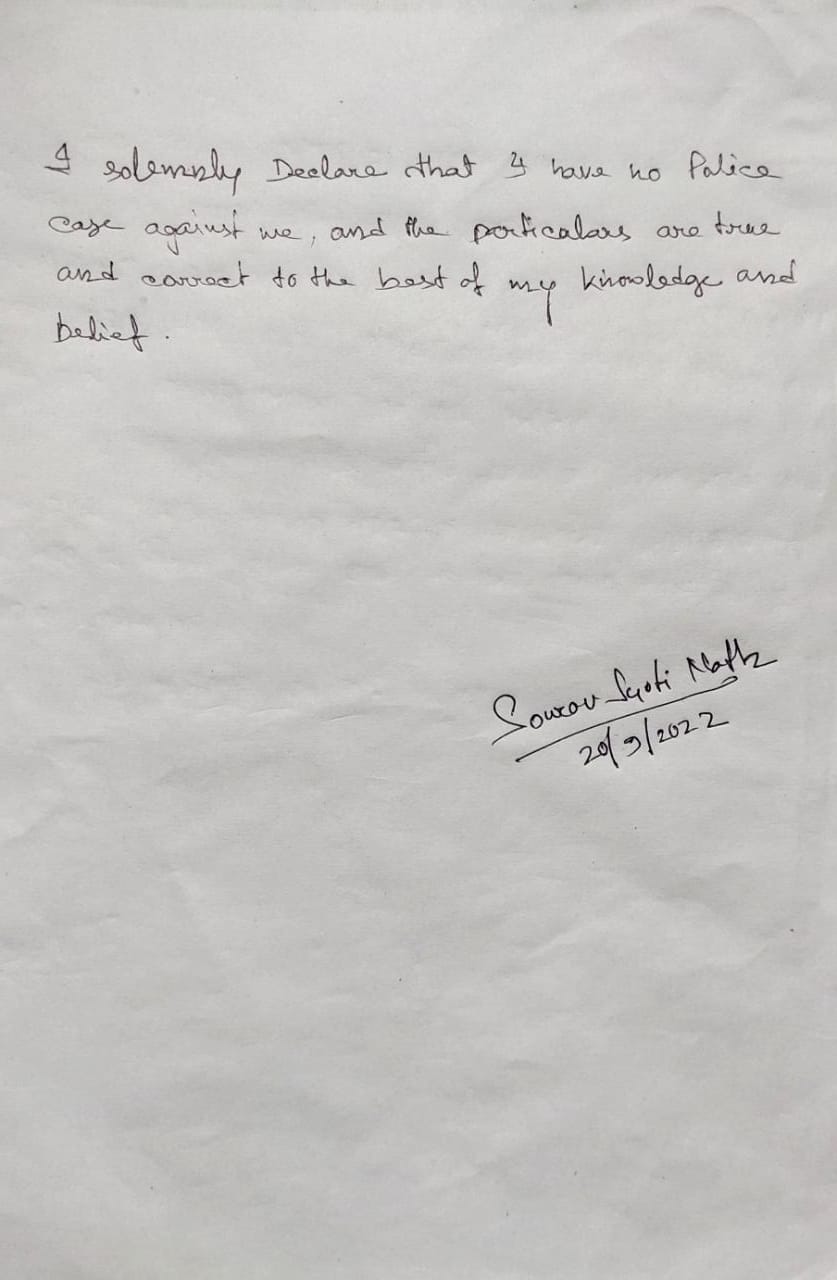 I solemnly Declare that I have no Police
case against me, and the perticulars are true
and correct to the best of my knowledge and
belief.
Sourav Jyoti Nath
20/9/2022